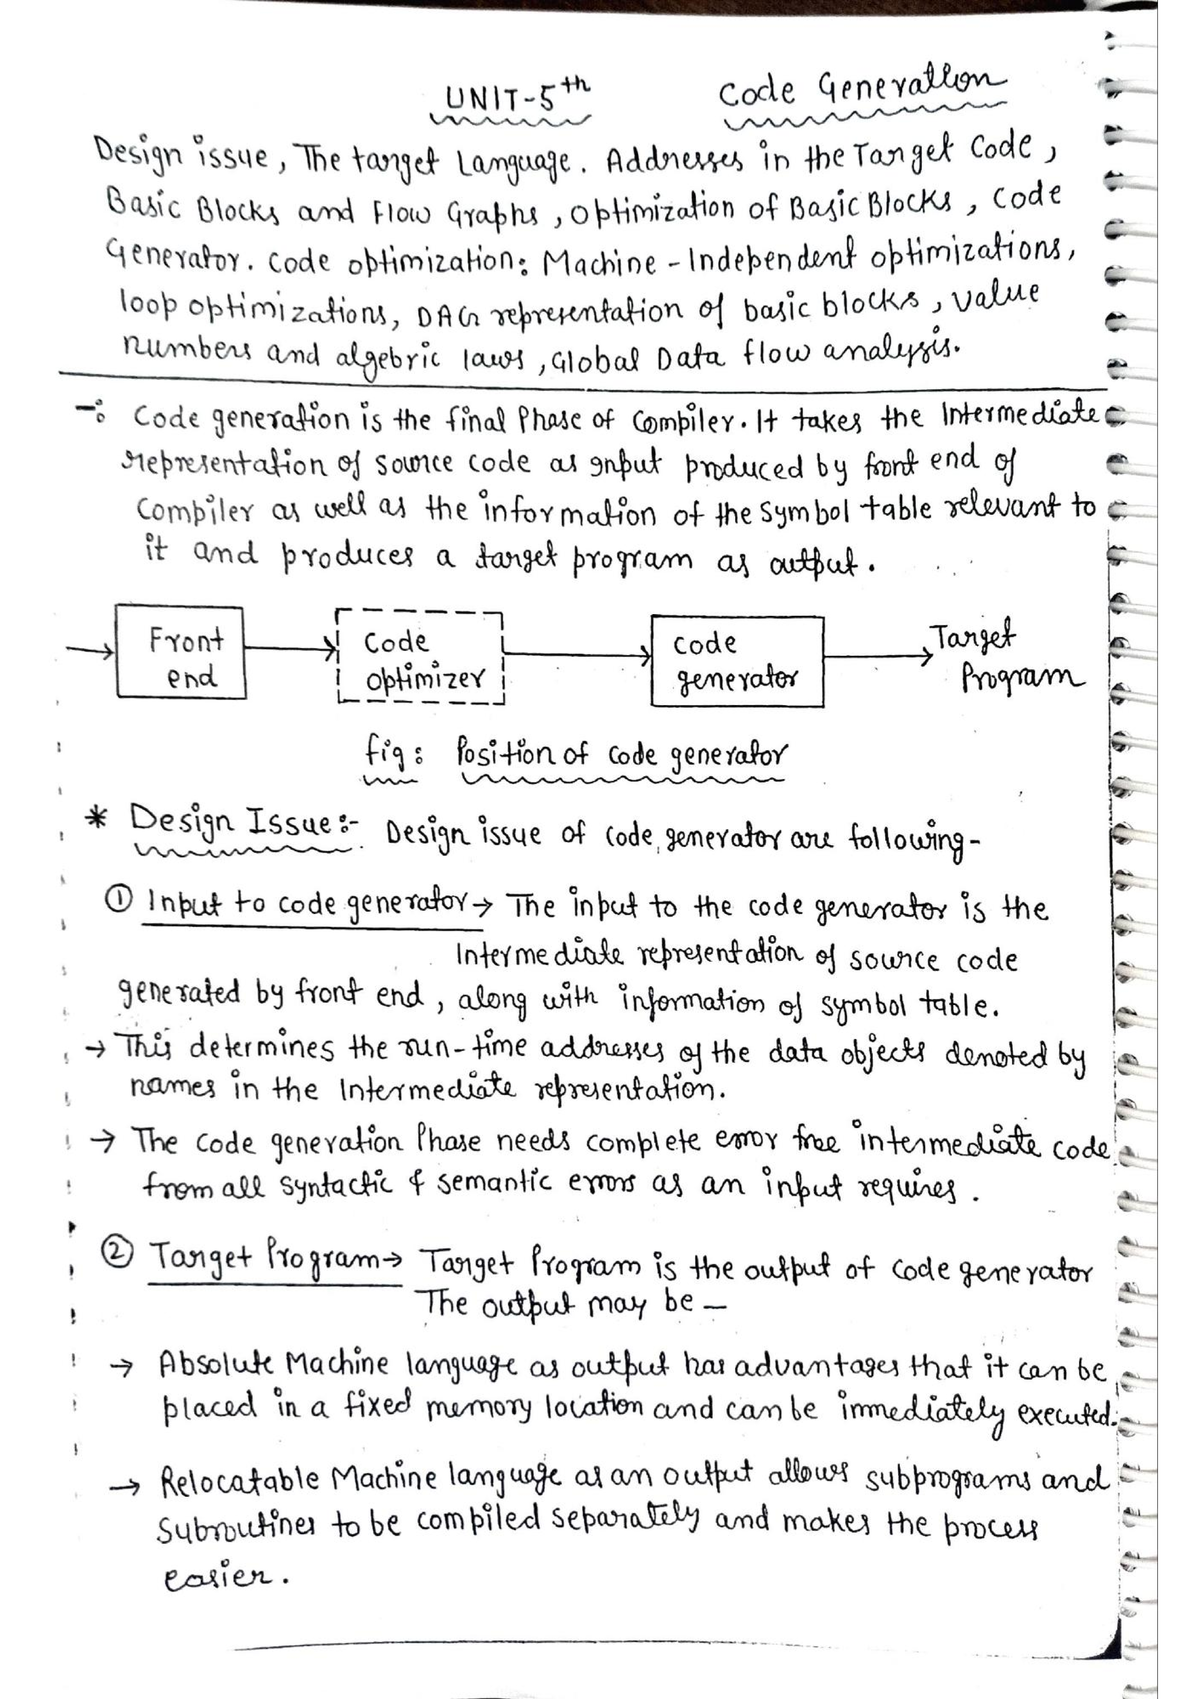 UNIT-5th Code Generation
Design issue, The target Language. Addresses in the Target Code,
Basic Blocks and Flow Graphs, Optimization of Basic Blocks, Code
Generator. Code optimization: Machine-Independent optimizations,
loop optimizations, DAG representation of basic blocks, value
numbers and algebric laws, Global Data flow analysis.
-: Code generation is the final Phase of Compiler. It takes the Intermediate
representation of source code as input produced by front end of
Compiler as well as the information of the symbol table relevant to
it and produces a target program as output.
Front
end
Code
optimizer
Code
generator
Target
Program
fig: Position of code generator
* Design Issue:- Design issue of code generator are following-
① Input to code generator→ The input to the code generator is the
Intermediate representation of source code
generated by front end, along with information of symbol table.
→ This determines the run-time addresses of the data objects denoted by
names in the Intermediate representation.
→ The code generation Phase needs complete error free intermediate code
from all syntactic & semantic errors as an input requires.
② Target Program→ Target Program is the output of code generator
The output may be —
→ Absolute Machine language as output has advantages that it can be
placed in a fixed memory location and can be immediately executed.
→ Relocatable Machine language as an output allows subprograms and
Subroutines to be compiled separately and makes the process
easier.